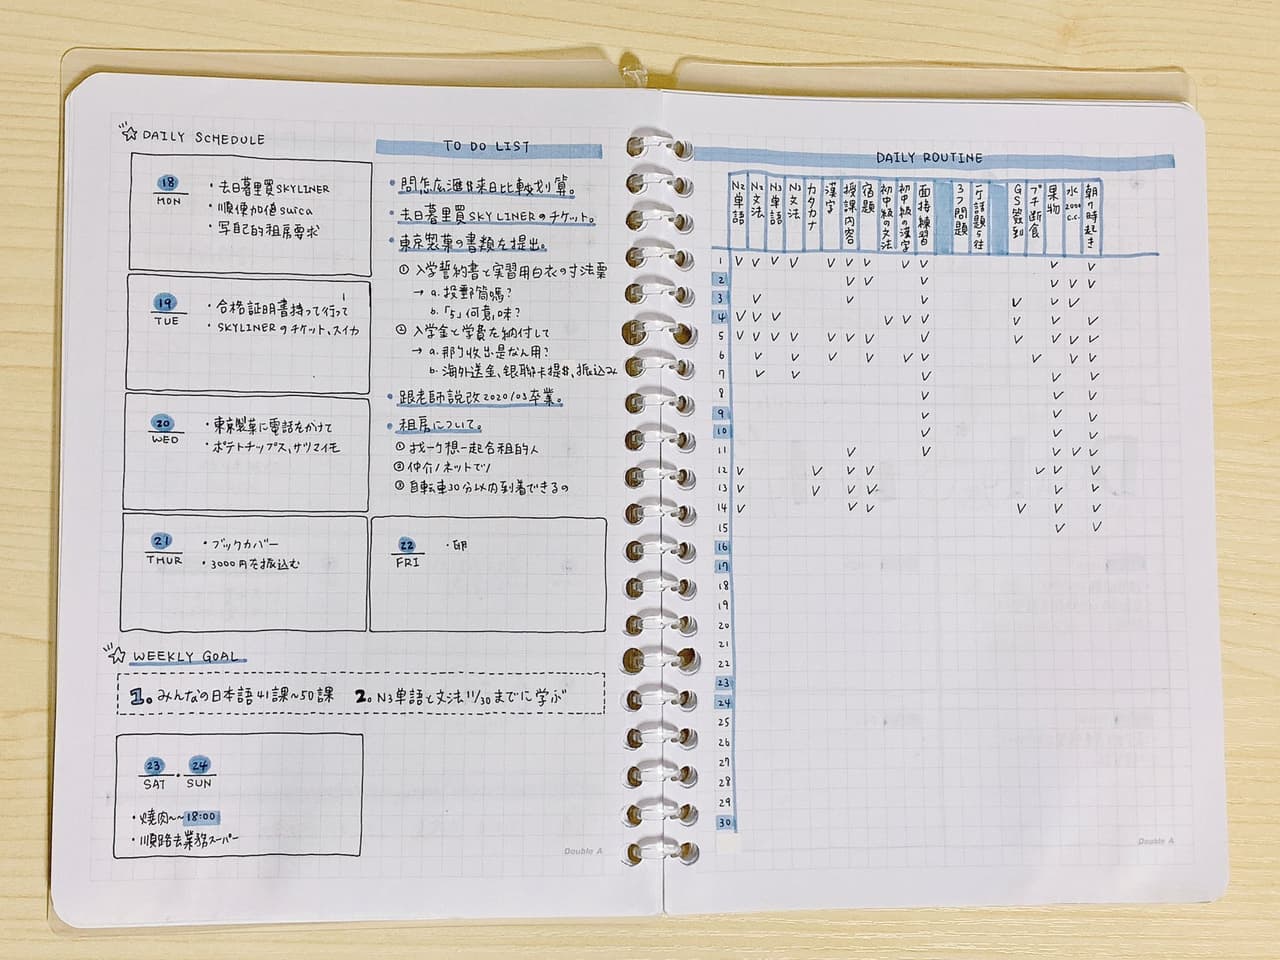 DAILY SCHEDULE
18
MON
・去日暮里買SKYLINER
・順便加值suica
・写自己的租房要求
19
TUE
・合格証明書持って行って
・SKYLINERのチケット、スイカ
20
WED
・東京製菓に電話をかけて
・ポテトチップス、サツマイモ
21
THUR
・ブックカバー
・3000円を振込む
22
FRI
・卵
TO DO LIST
・問怎広滙錢来日比較划算。
・去日暮里買SKYLINERのチケット。
・東京製菓の書類を提出。
① 入学誓約書と実習用白衣の寸法票
→ a. 投郵筒嗎?
b.「5」何意味?
② 入学金と学費を納付して
→ a. 那り收出是なん用?
b. 海外送金、银聯卡提錢、振込み
・跟老師説改2020/03卒業。
・租房について。
①找一个想一起合租的人
②仲介/ネットで/
③自転車30分以内到着できるの
WEEKLY GOAL
1. みんなの日本語41課~50課 2. N3単語と文法11/30までに学ぶ
23・24
SAT SUN
・燒肉~~18:00
・順路去業務スーパー
Double A
DAILY ROUTINE
N2単語
N2文法
N3単語
N3文法
カタカナ
漢字
授課内容
宿題
初中級の文法
初中級の漢字
面接練習
3つ問題
GS簽到
プチ断食
果物
水2000c.c.
朝7時起き
1
2
3
4
5
6
7
8
9
10
11
12
13
14
15
16
17
18
19
20
21
22
23
24
25
26
27
28
29
30
Double A